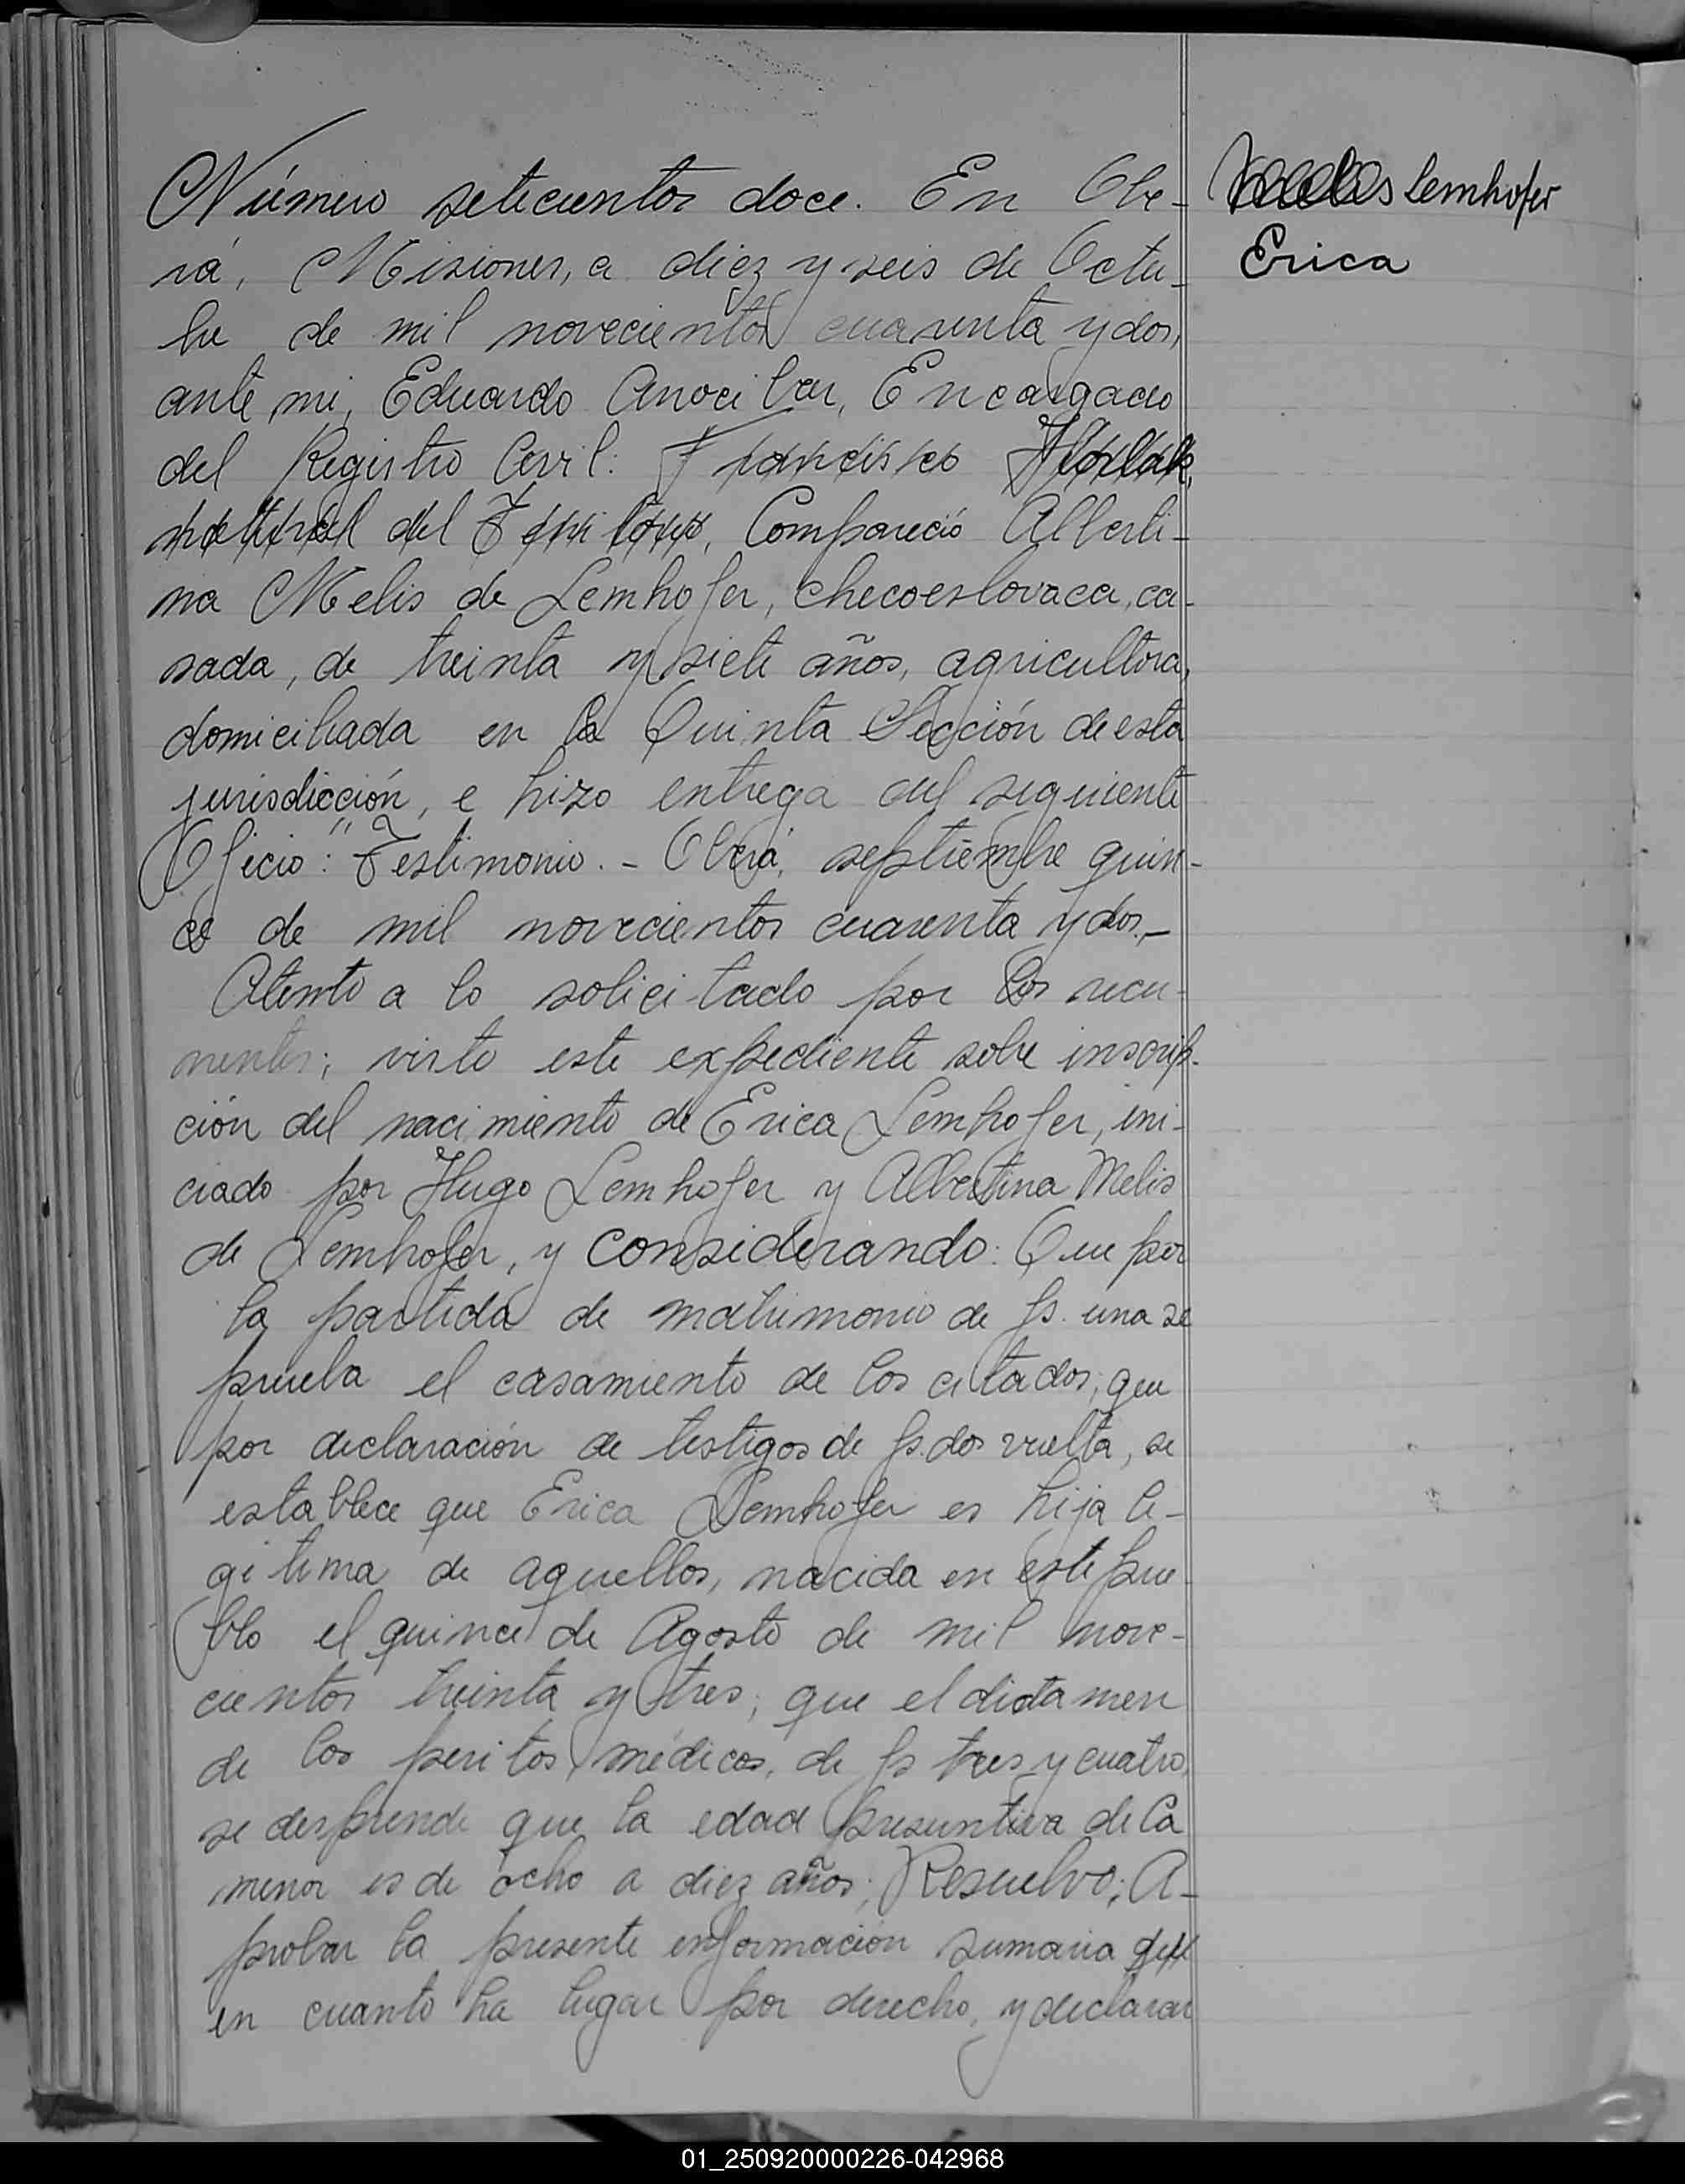 Número seticientos doce. En Obe-
rá, Misiones, a diez y seis de Octu-
bre de mil novecientos cuarenta y dos,
ante mi, Eduardo Anocibar, Encargado
del Registro Civil: Francisco Horlak,
natural del Territorio, Compareció Alberti-
na Melis de Lemhofer, checoeslovaca, ca-
sada, de treinta y siete años, agricultora,
domiciliada en la Quinta Sección de esta
jurisdicción, e hizo entrega del siguiente
Oficio: "Testimonio. - Oberá, septiembre quin-
ce de mil novecientos cuarenta y dos.-
Atento a lo solicitado por los recu-
rrentes; visto este expediente sobre inscrip-
ción del nacimiento de Erica Lemhofer, ini-
ciado por Hugo Lemhofer y Albertina Melis
de Lemhofer, y considerando: Que por
la partida de matrimonio de fs. una se
prueba el casamiento de los citados; que
por declaración de testigos de fs. dos vuelta, se
establece que Erica Lemhofer es hija le-
gitima de aquellos, nacida en este pue-
blo el quince de Agosto de mil nove-
cientos treinta y tres; que el dictamen
de los peritos médicos, de fs tres y cuatro,
se desprende que la edad presuntiva de la
menor es de ocho a diez años; Resuelvo; A-
probar la presente información sumaria
en cuanto ha lugar por derecho, y declarar
Lemhofer
Erica
01_250920000226-042968